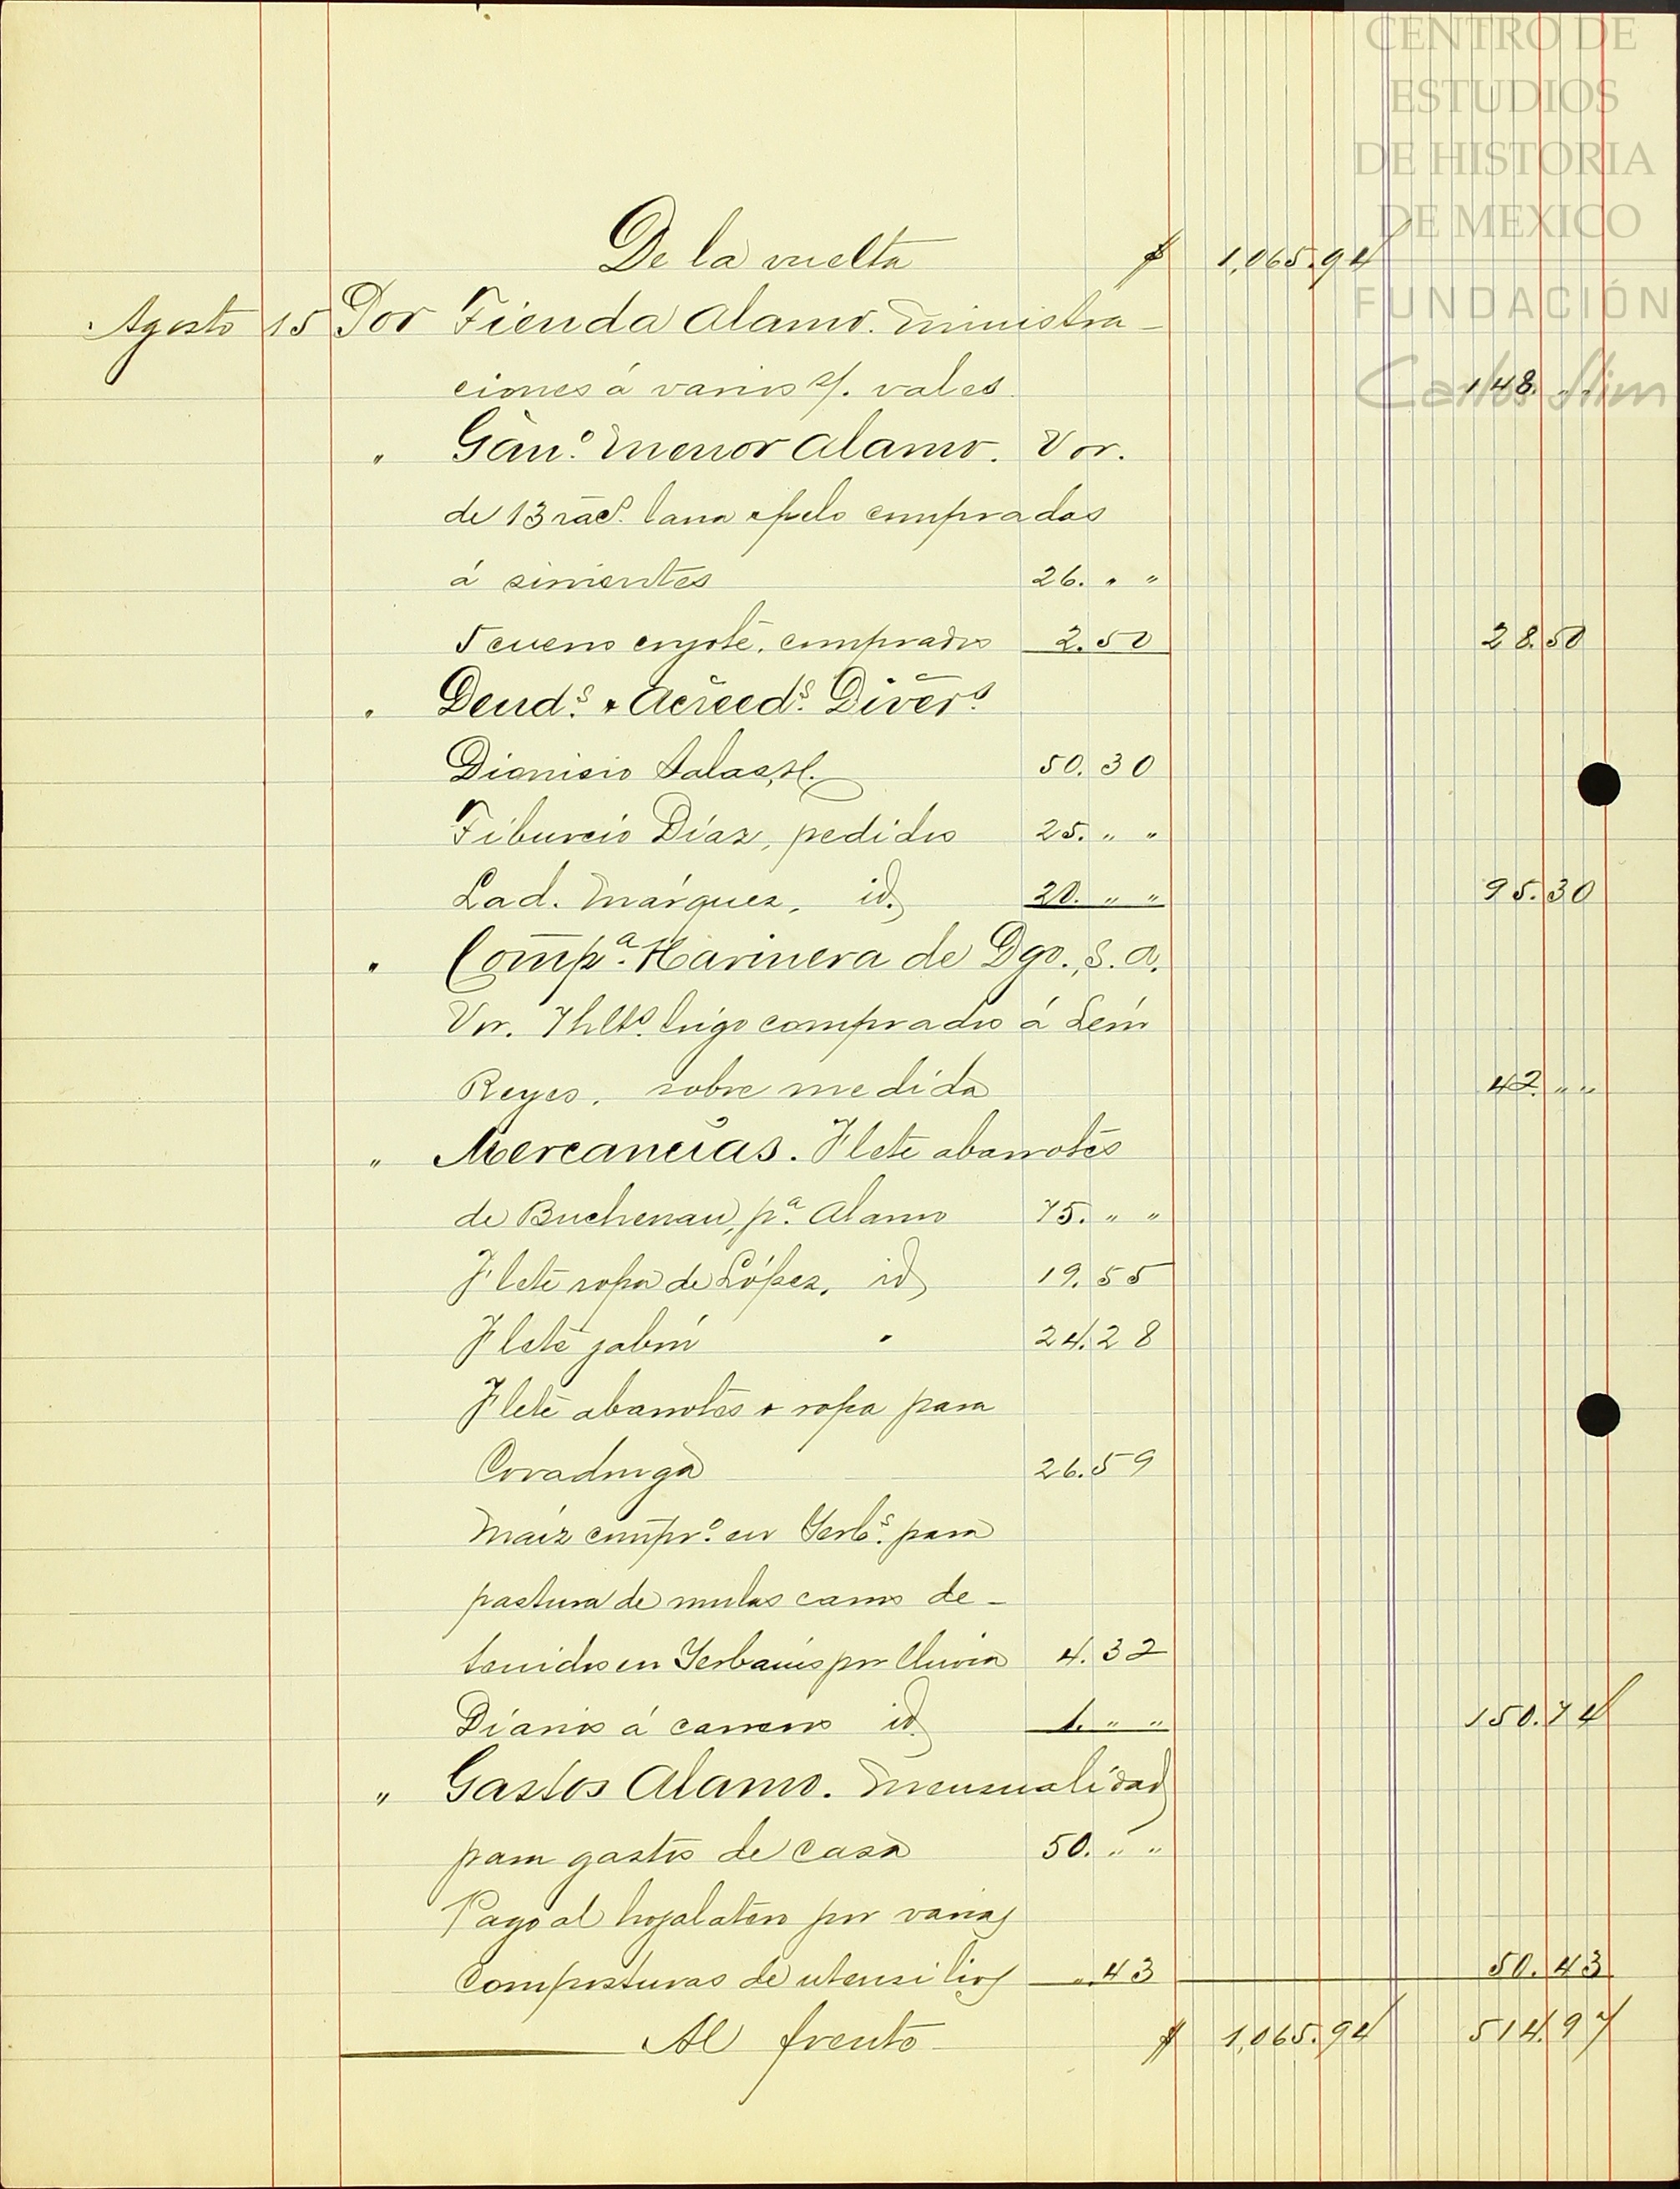 CENTRO DE
ESTUDIOS
DE HISTORIA
DE MEXICO
FUNDACIÓN
Carlos Slim
De la vuelta $ 1,065.94
Agosto 15 Por Tienda Alamo. Ministra-
ciones á varios s/. vales 148. " "
" Gan.º Menor Alamo. Vor.
de 13 lana y pelo compradas
á sirvientes 26. " "
5 cueros coyote, comprados 2.50 28.50
" Deud.s & Acreed.s Divers.
Dionisio Salas, 50.30
Tiburcio Díaz, pedidos 25. " "
Lad. Márquez, id. 20. " " 95.30
" Comp.a Harinera de Dgo., S. A.
Vor. 7 hlts. trigo comprados á León
Reyes, sobre medida 42. " "
" Mercancías. Flete abarrotes
de Buchenau, p.a Alamo 75. " "
Flete ropa de López, id 19.55
Flete jabón " 24.28
Flete abarrotes & ropa para
Covadonga 26.59
Maíz compr.o en Yerb.s para
pastura de mulas carros de-
tenidos en Yerbanís por lluvia 4.32
Diarios á carreros id. 1. " " 150.74
" Gastos Alamo. Mensualidad
para gastos de casa 50. " "
Pago al hojalatero por varias
composturas de utensilios ".43 50.43
Al frente $ 1,065.94 514.97